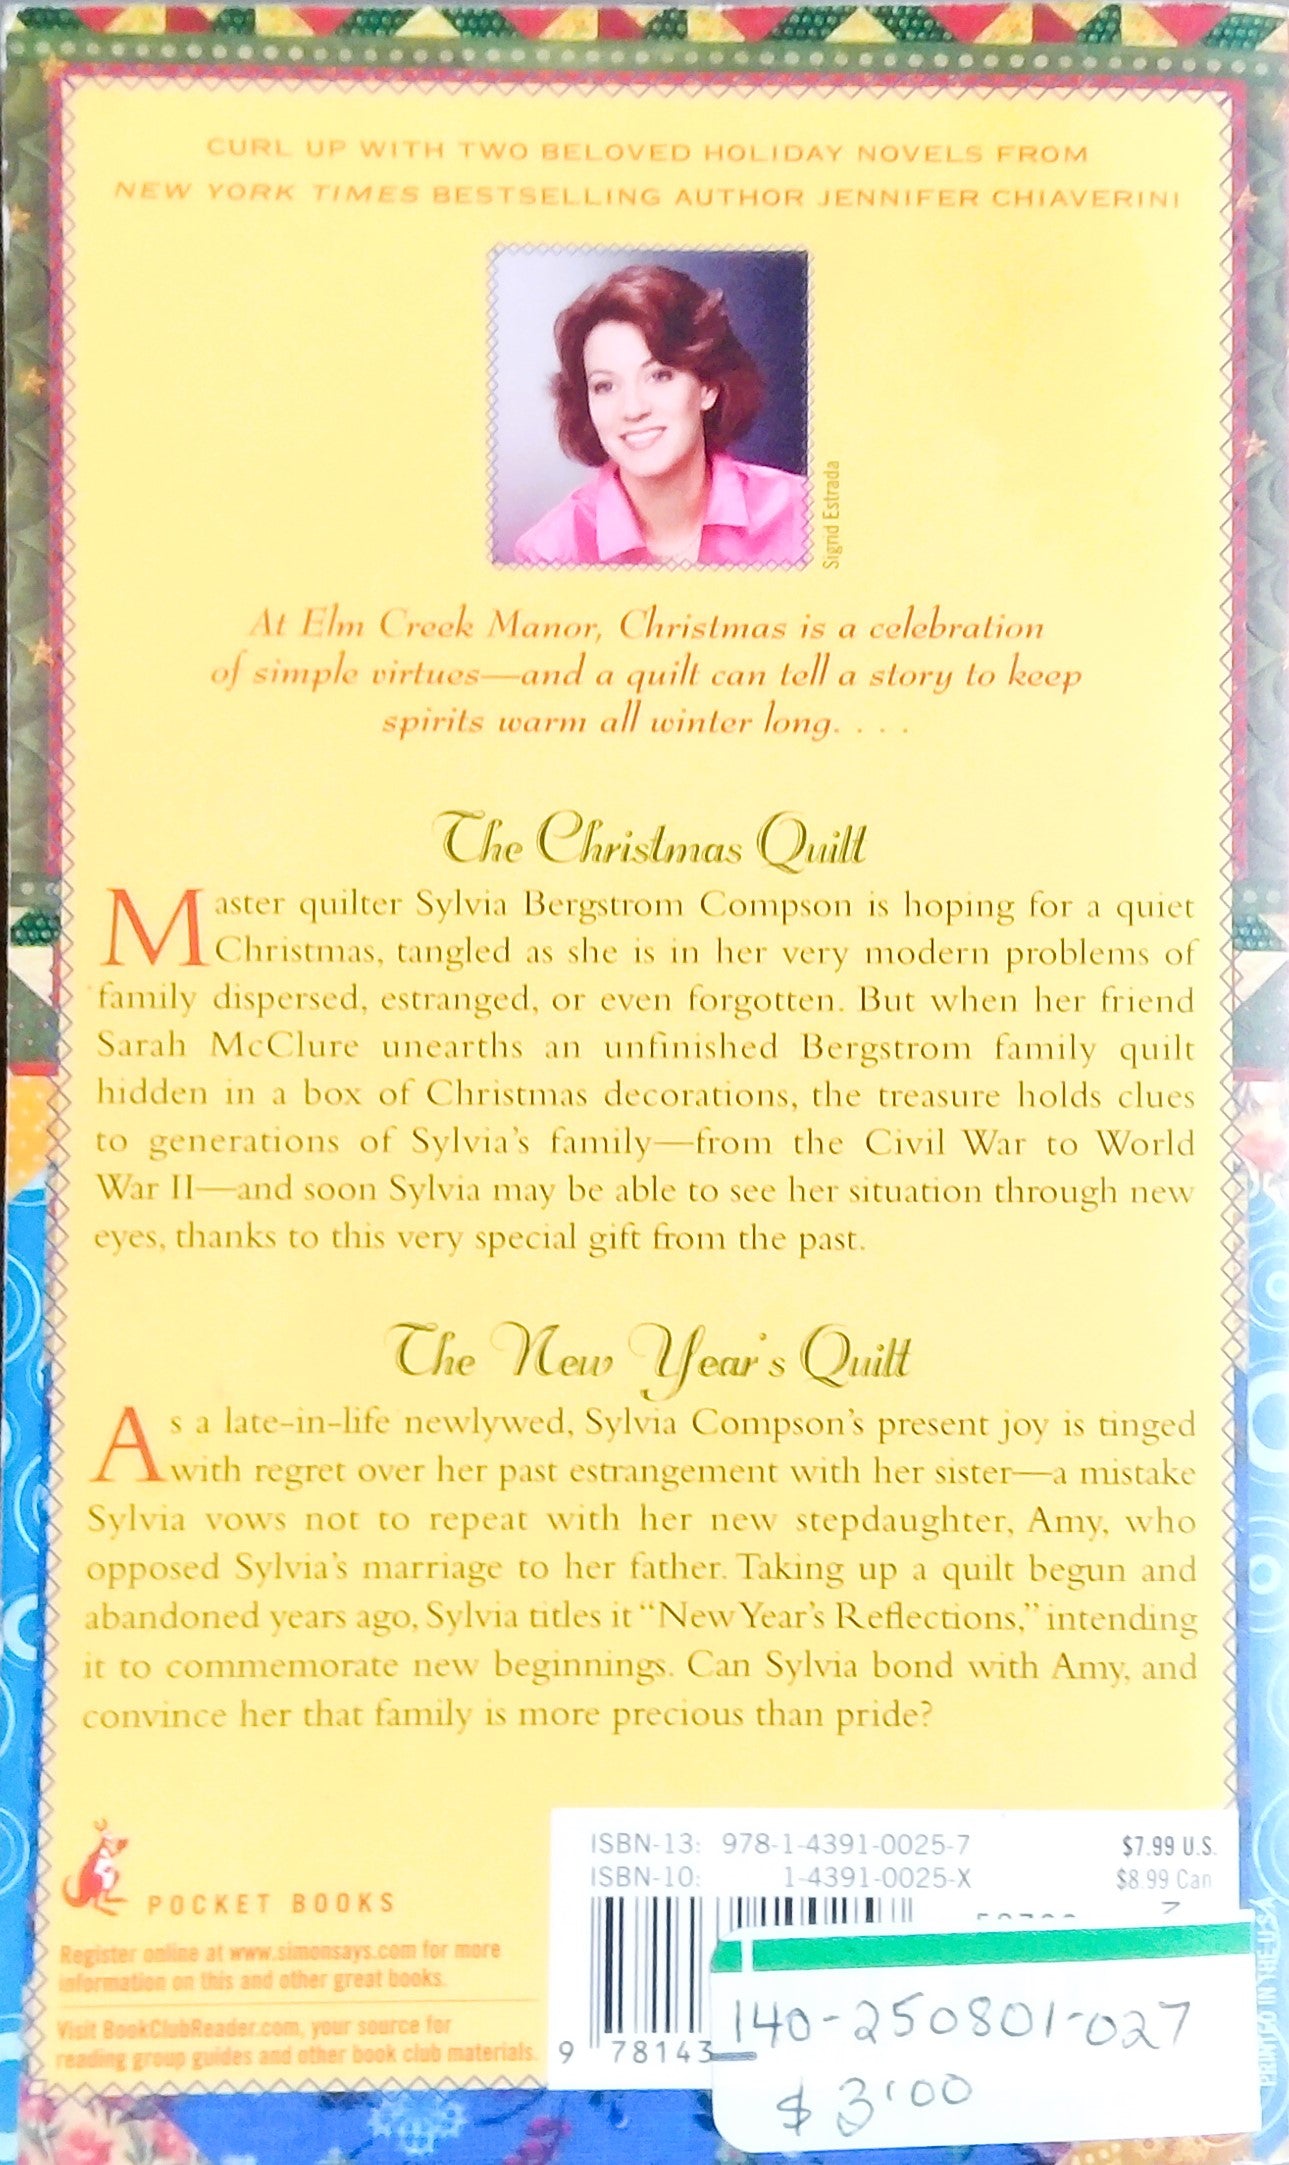 CURL UP WITH TWO BELOVED HOLIDAY NOVELS FROM
NEW YORK TIMES BESTSELLING AUTHOR JENNIFER CHIAVERINI
Sigrid Estrada
At Elm Creek Manor, Christmas is a celebration
of simple virtues—and a quilt can tell a story to keep
spirits warm all winter long. . . .
The Christmas Quilt
Master quilter Sylvia Bergstrom Compson is hoping for a quiet
Christmas, tangled as she is in her very modern problems of
family dispersed, estranged, or even forgotten. But when her friend
Sarah McClure unearths an unfinished Bergstrom family quilt
hidden in a box of Christmas decorations, the treasure holds clues
to generations of Sylvia's family—from the Civil War to World
War II—and soon Sylvia may be able to see her situation through new
eyes, thanks to this very special gift from the past.
The New Year's Quilt
As a late-in-life newlywed, Sylvia Compson's present joy is tinged
with regret over her past estrangement with her sister—a mistake
Sylvia vows not to repeat with her new stepdaughter, Amy, who
opposed Sylvia's marriage to her father. Taking up a quilt begun and
abandoned years ago, Sylvia titles it "New Year's Reflections," intending
it to commemorate new beginnings. Can Sylvia bond with Amy, and
convince her that family is more precious than pride?
POCKET BOOKS
Register online at www.simonsays.com for more
information on this and other great books.
Visit BookClubReader.com, your source for
reading group guides and other book club materials.
ISBN-13: 978-1-4391-0025-7
ISBN-10: 1-4391-0025-X
$7.99 U.S.
$8.99 Can
9 78143
140-250801-027
$3.00
PRINTED IN THE USA